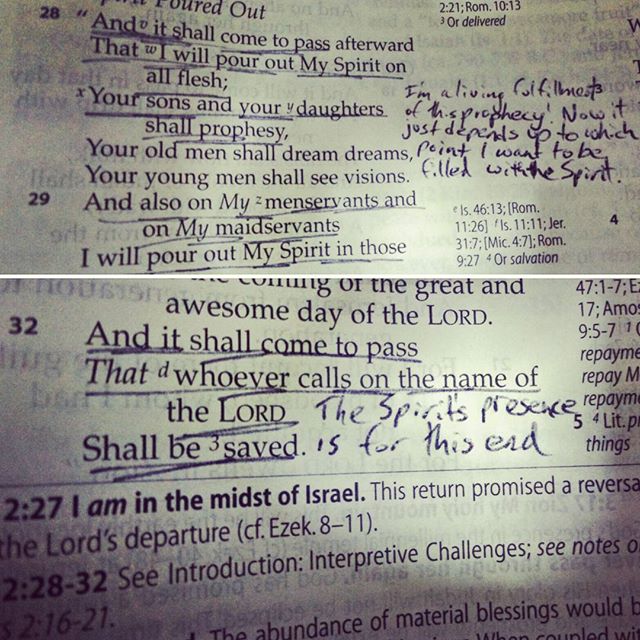 Poured Out
2:21; Rom. 10:13
³ Or delivered
28 "And ᵛ it shall come to pass afterward
That ʷ I will pour out My Spirit on
all flesh;
ˣ Your sons and your ʸ daughters
shall prophesy,
Your old men shall dream dreams,
Your young men shall see visions.
29 And also on My ᶻ menservants and
on My maidservants
I will pour out My Spirit in those
I'm a living fulfillment
of this prophecy! Now it
just depends up to which
point I want to be
filled with the Spirit.
ᵉ Is. 46:13; [Rom.
11:26] ᶠ Is. 11:11; Jer.
31:7; [Mic. 4:7]; Rom.
9:27 ⁴ Or salvation
4
coming of the great and
awesome day of the LORD.
32 And it shall come to pass
That ᵈ whoever calls on the name of
the LORD
Shall be ³ saved.
The Spirit's presence
is for this end
47:1-7; E
17; Amos
9:5-7
repayme
repay M
repayme
5 ⁴ Lit. p
things
2:27 I am in the midst of Israel. This return promised a reversa
the Lord's departure (cf. Ezek. 8–11).
2:28-32 See Introduction: Interpretive Challenges; see notes o
2:16-21.
The abundance of material blessings would b